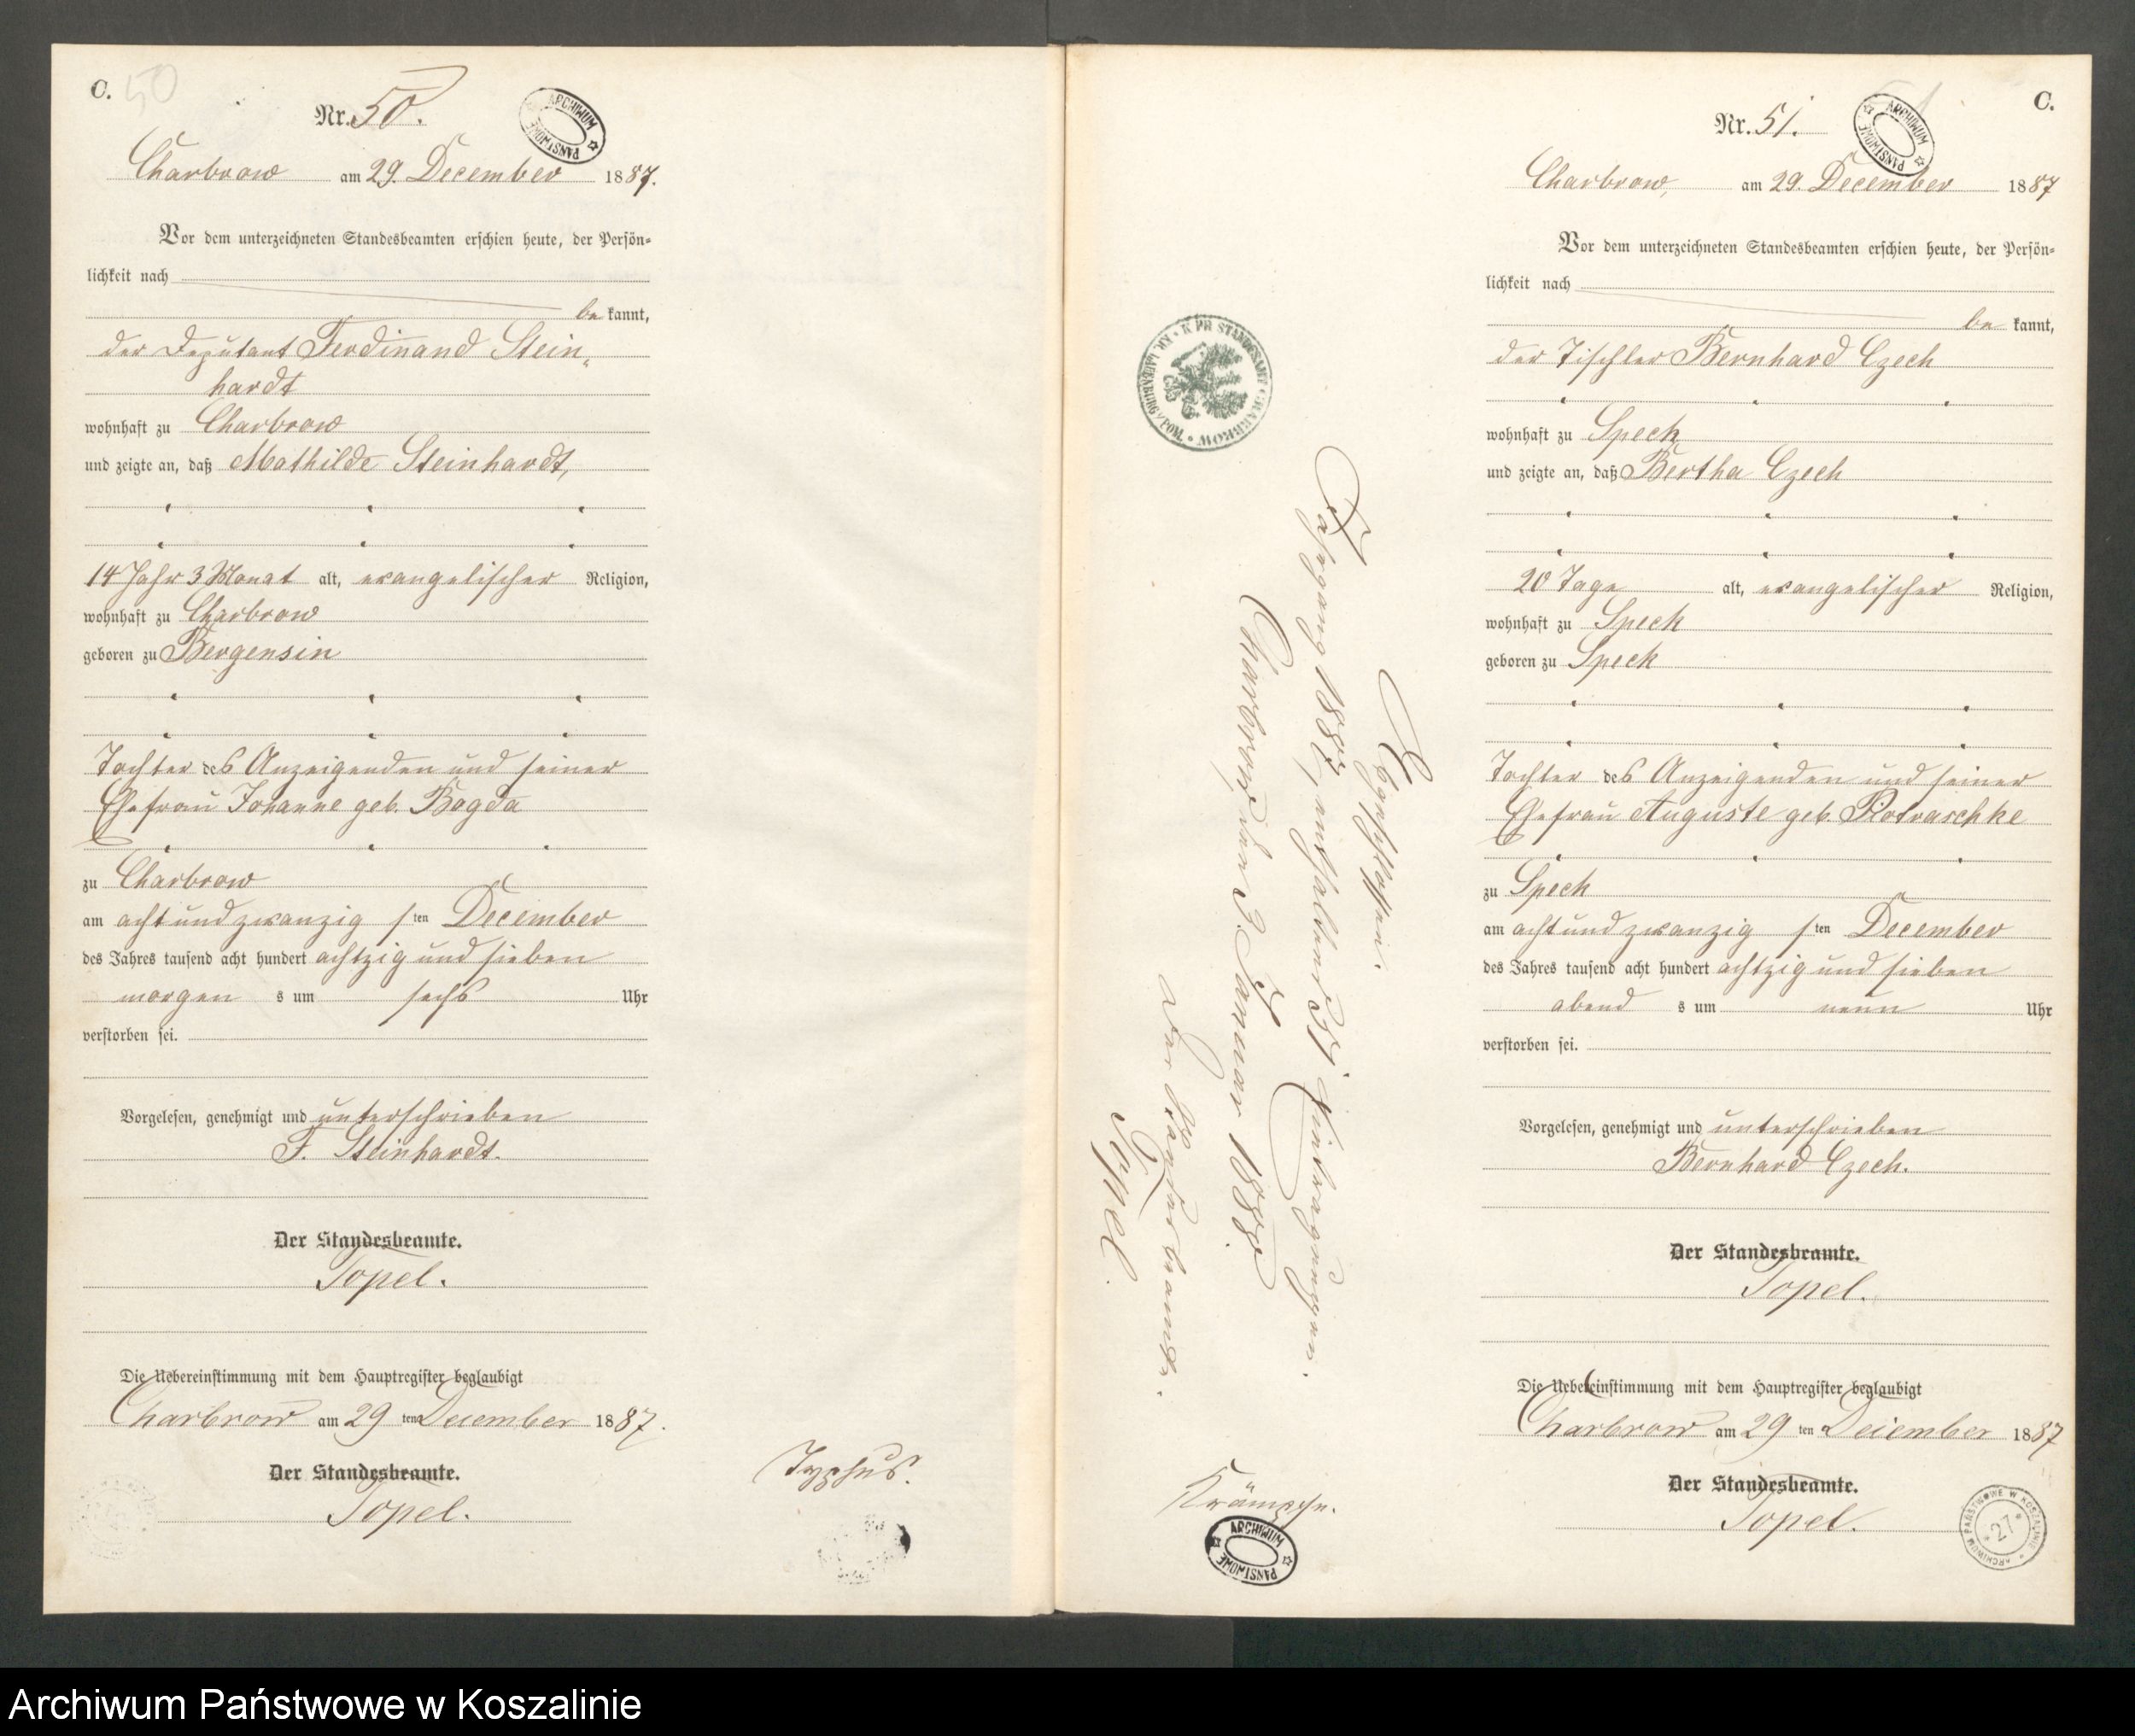 C. 50
Nr. 50.
Charbrow am 29. December 1887.
Vor dem unterzeichneten Standesbeamten erschien heute, der Persön-
lichkeit nach
be kannt,
der Deputant Ferdinand Stein-
hardt
wohnhaft zu Charbrow
und zeigte an, daß Mathilde Steinhardt,
14 Jahr 3 Monat alt, evangelischer Religion,
wohnhaft zu Charbrow
geboren zu Bergensin
Tochter des Anzeigenden und seiner
Ehefrau Johanne geb. Bogda
zu Charbrow
am acht und zwanzigsten December
des Jahres tausend acht hundert achtzig und sieben
morgen s um sechs Uhr
verstorben sei.
Vorgelesen, genehmigt und unterschrieben
F. Steinhardt.
Der Standesbeamte.
Topel.
Die Uebereinstimmung mit dem Hauptregister beglaubigt
Charbrow am 29 ten December 1887.
Der Standesbeamte.
Topel.
Typhus.
ARCHIWUM PAŃSTWOWE
C.
Nr. 51.
ARCHIWUM PAŃSTWOWE
Charbrow, am 29. December 1887
Vor dem unterzeichneten Standesbeamten erschien heute, der Persön-
lichkeit nach
be kannt,
der Tischler Bernhard Czech
wohnhaft zu Speck
und zeigte an, daß Bertha Czech
20 Tage alt, evangelischer Religion,
wohnhaft zu Speck
geboren zu Speck
Tochter des Anzeigenden und seiner
Ehefrau Auguste geb. Rotraschke
zu Speck
am acht und zwanzigsten December
des Jahres tausend acht hundert achtzig und sieben
abend s um neun Uhr
verstorben sei.
Vorgelesen, genehmigt und unterschrieben
Bernhard Czech.
Der Standesbeamte.
Topel.
Die Uebereinstimmung mit dem Hauptregister beglaubigt
Charbrow am 29 ten December 1887
Der Standesbeamte.
Topel.
Krämpfe.
Abgeschlossen.
Jahrgang 1887, enthaltend 51 Eintragungen.
Charbrow, den 3. Januar 1888.
Der Standesbeamte.
Topel.
K. PR. STANDESAMT CHARBROW • KR. LAUENBURG i/POM.
ARCHIWUM PAŃSTWOWE
ARCHIWUM PAŃSTWOWE W KOSZALINIE
27
Archiwum Państwowe w Koszalinie